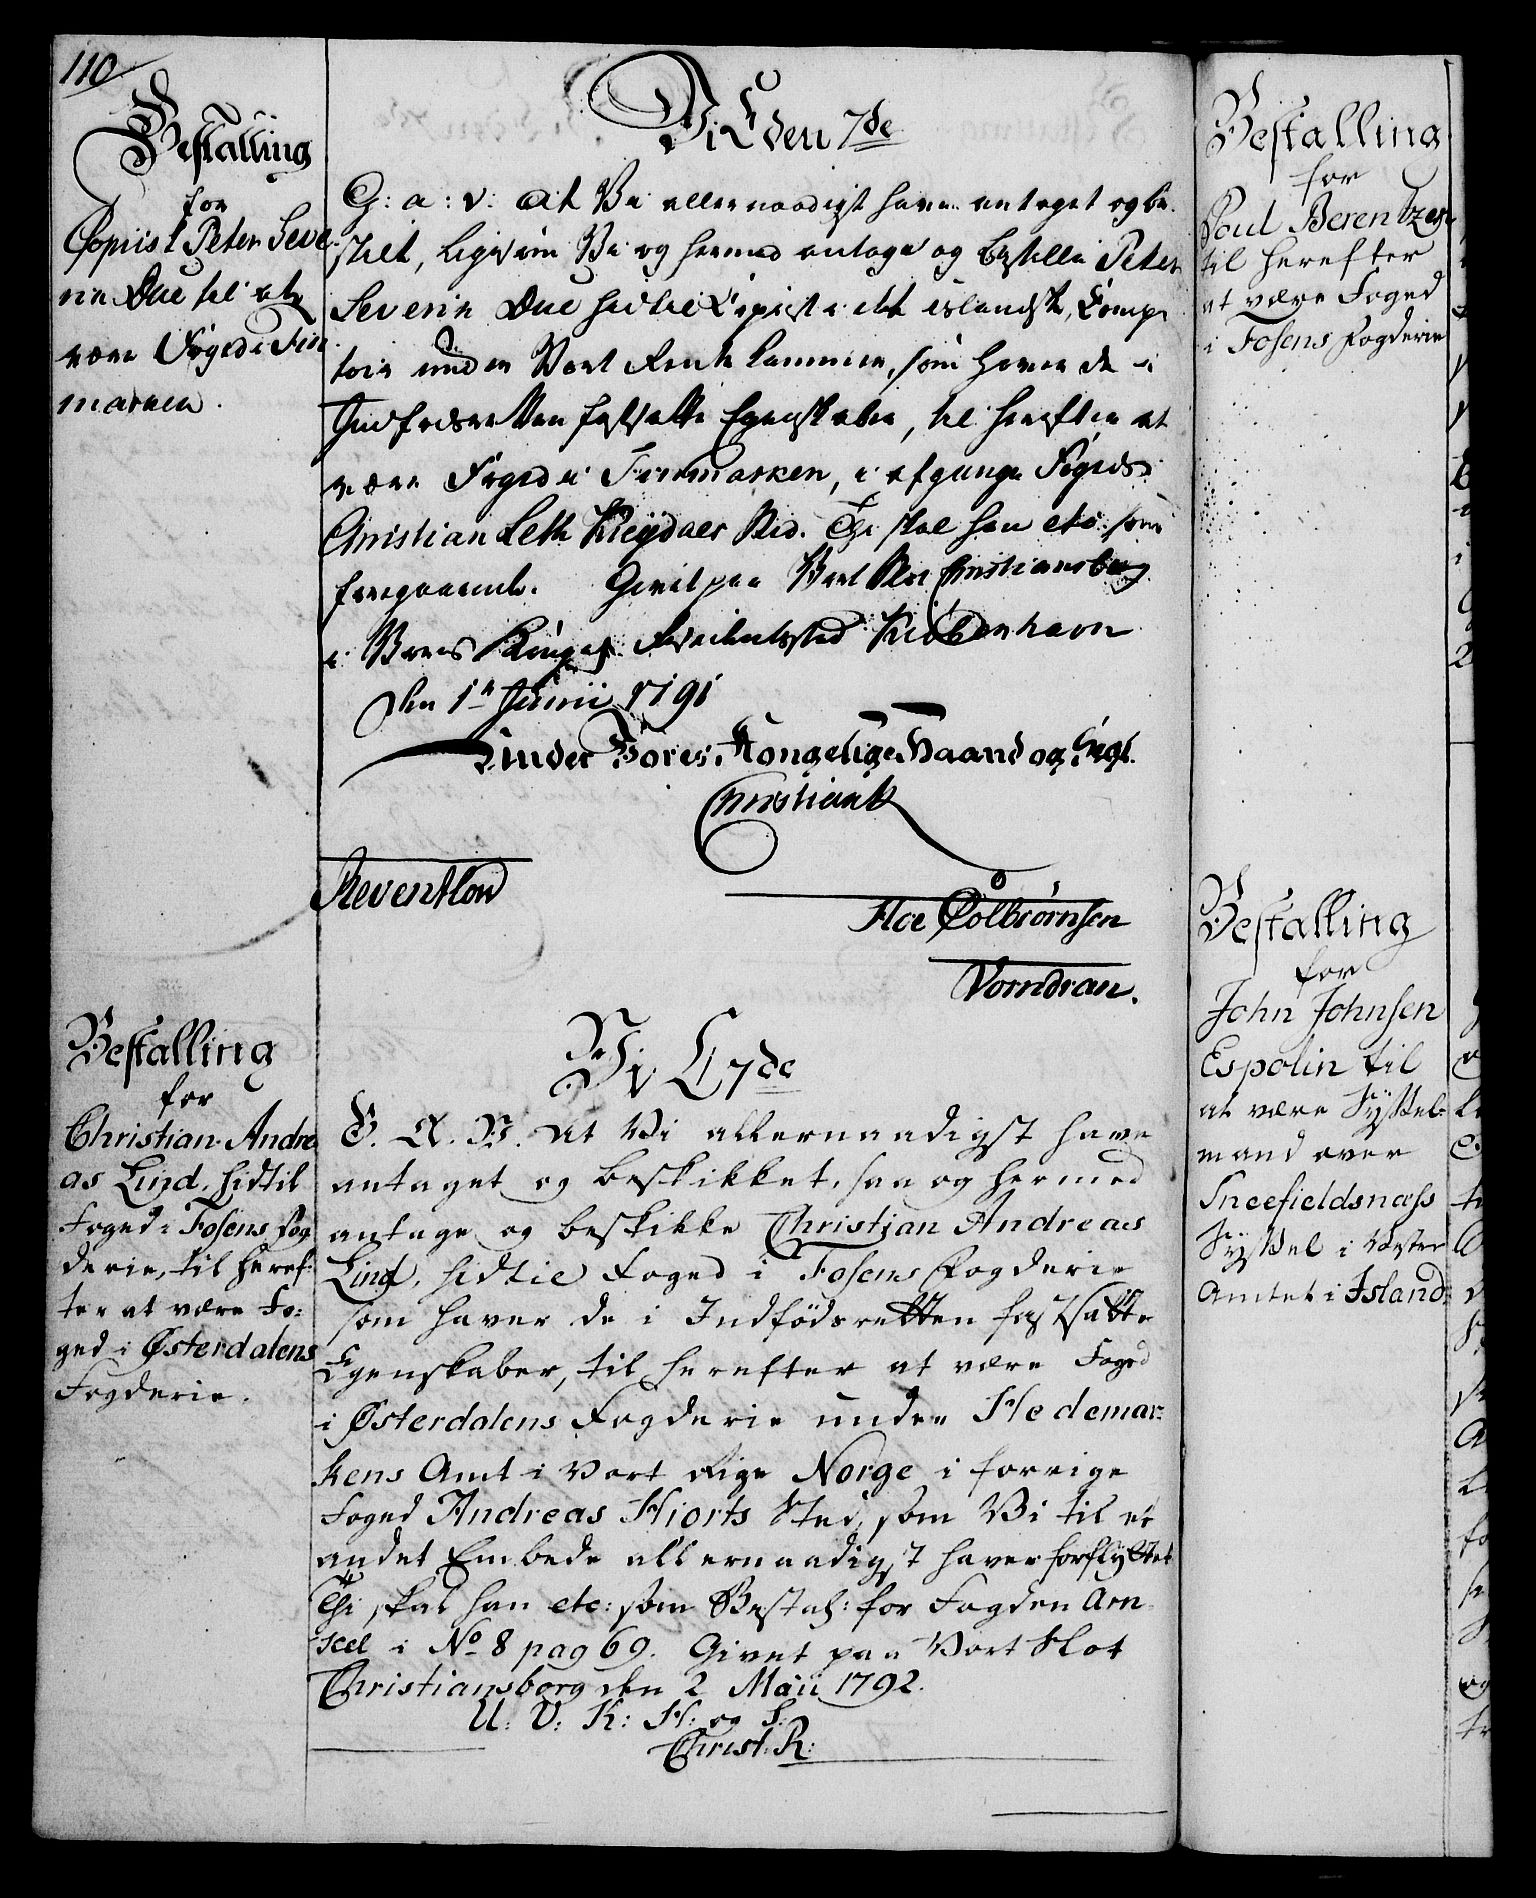 110
Bestalling
for
Copiist Peter Seve-
rin Due til at
være Foged i Fin
marken.
Vi C den 7de
G: a: v: At Vi allernaadigst have antaget og be-
skiket, ligesom Vi og hermed antage og bestille Peter
Severin Due hidtil Copist i det islandske Comp-
toir under Vort Rente Kammer, som haver de i
Indfødsretten fastsatte Egenskaber, til herefter at
være Foged i Finmarken, i afgangne Fogeds
Christian Leth Kieydals Sted. Thi skal han etc: som
foregaaende. Givet paa Vort Slot Christiansborg
i Vores Kongel. Residentzstad Kiøbenhavn
den 1te Junii 1791
Under Vores Kongelige Haand og Seigl.
Christian R
Reventlow
Hoe Colbiørnsen
Vorndran.
Bestalling
for
Christian Andre
as Lind, hidtil
Foged i Fosens Fog
derie, til heref-
ter at være Fo-
ged i Østerdalens
Fogderie.
Vi C 7de
G. A. V. At Vi allernaadigst have
antaget og beskikket, saa og hermed
antage og beskikke Christian Andreas
Lind, hidtil Foged i Fosens Fogderie
som haver de i Indfödsretten fastsatte
Egenskaber, til herefter at være Foged
i Østerdalens Fogderie under Hedemar-
kens Amt i Vort Rige Norge i forrige
Foged Andreas Hiorts Sted, som Vi til et
andet Embede allernaadigst haver forflyttet
Thi skal han etc: som Bestall: for Fogden Arn
teel i No 8 pag 69. Givet paa Vort Slot
Christiansborg den 2 Maii 1792.
U: V: K: H: og S:
Christ: R:
Bestalling
for
Poul Berentzen
til herefter
at være Foged
i Fosens Fogderie
Bestalling
for
John Johnsen
Espolin til
at være Syssel-
mand over
Sneefieldsnæss
Syssel i Vester
Amtet i Island.